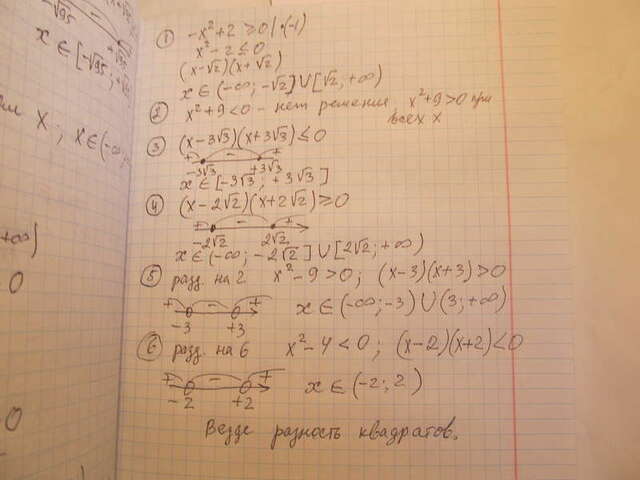 -√95 +√95
x ∈ [-√95; +√
x; x ∈ (-∞;
+∞)
0
0
① -x²+2 ≥ 0 | ·(-1)
x²-2 ≤ 0
(x-√2)(x+√2)
x ∈ (-∞; -√2] ∪ [√2; +∞)
② x²+9 < 0 - нет решения, x²+9 > 0 при
всех x
③ (x-3√3)(x+3√3) ≤ 0
+ - +
-3√3 +3√3
x ∈ [-3√3; +3√3]
④ (x-2√2)(x+2√2) ≥ 0
+ - +
-2√2 2√2
x ∈ (-∞; -2√2] ∪ [2√2; +∞)
⑤ разд. на 2 x²-9 > 0; (x-3)(x+3) > 0
+ - + x ∈ (-∞; -3) ∪ (3; +∞)
-3 +3
⑥ разд. на 6 x²-4 < 0; (x-2)(x+2) < 0
+ - + x ∈ (-2; 2)
-2 +2
Везде разность квадратов.